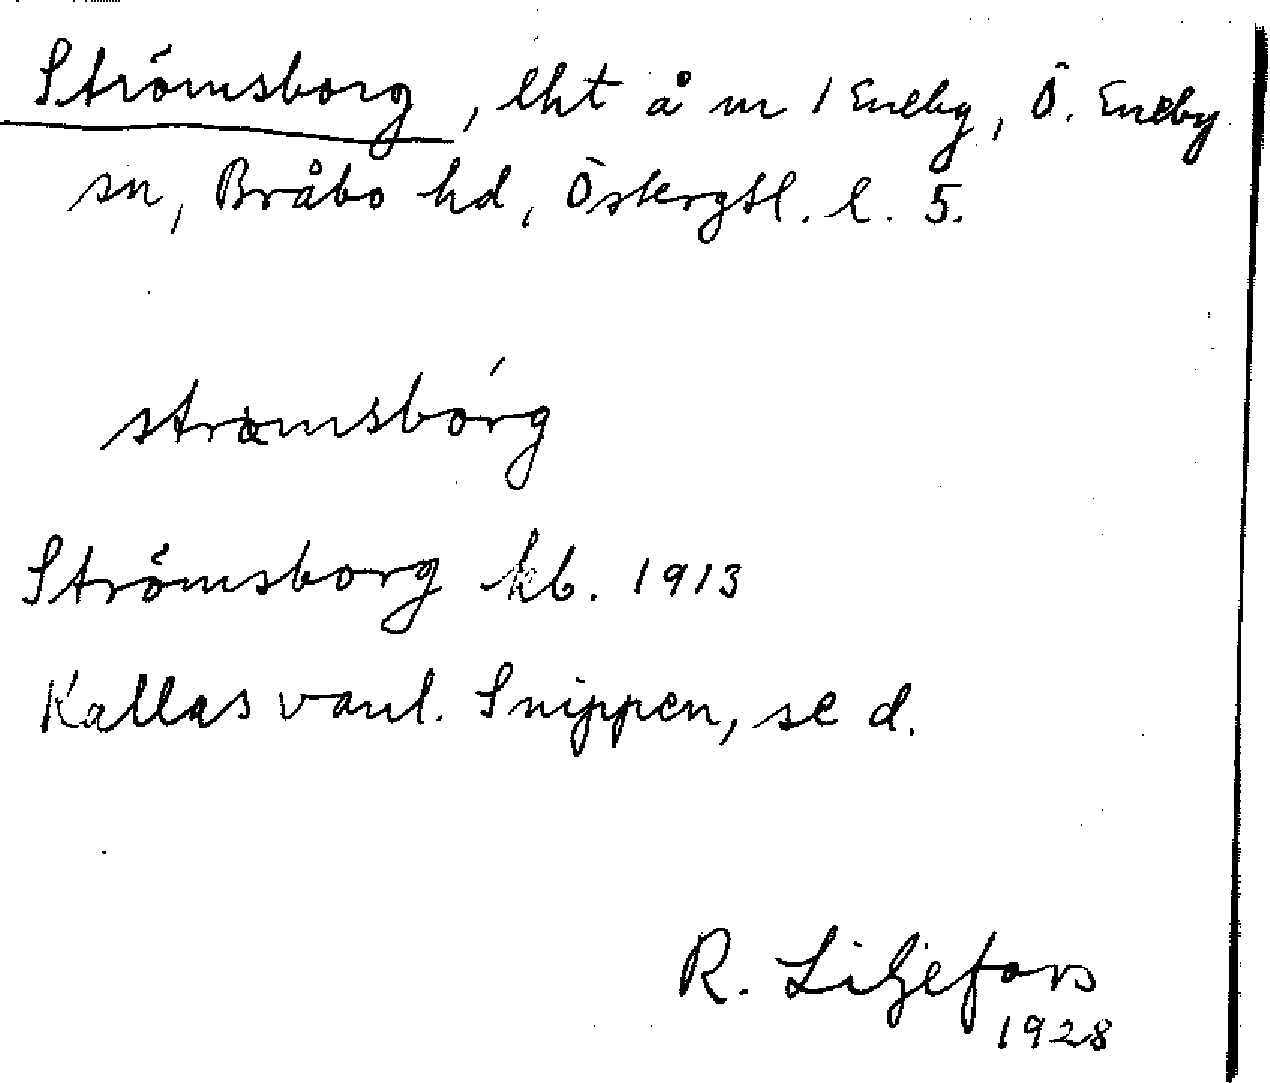 Strömsborg, lht å nr 1 Eneby, Ö. Eneby
sn, Bråbo hd, Östergtl. l. 5.
Strömsborg kb. 1913
Kallas vanl. Snippen, se d.
R. Liljefors
1928